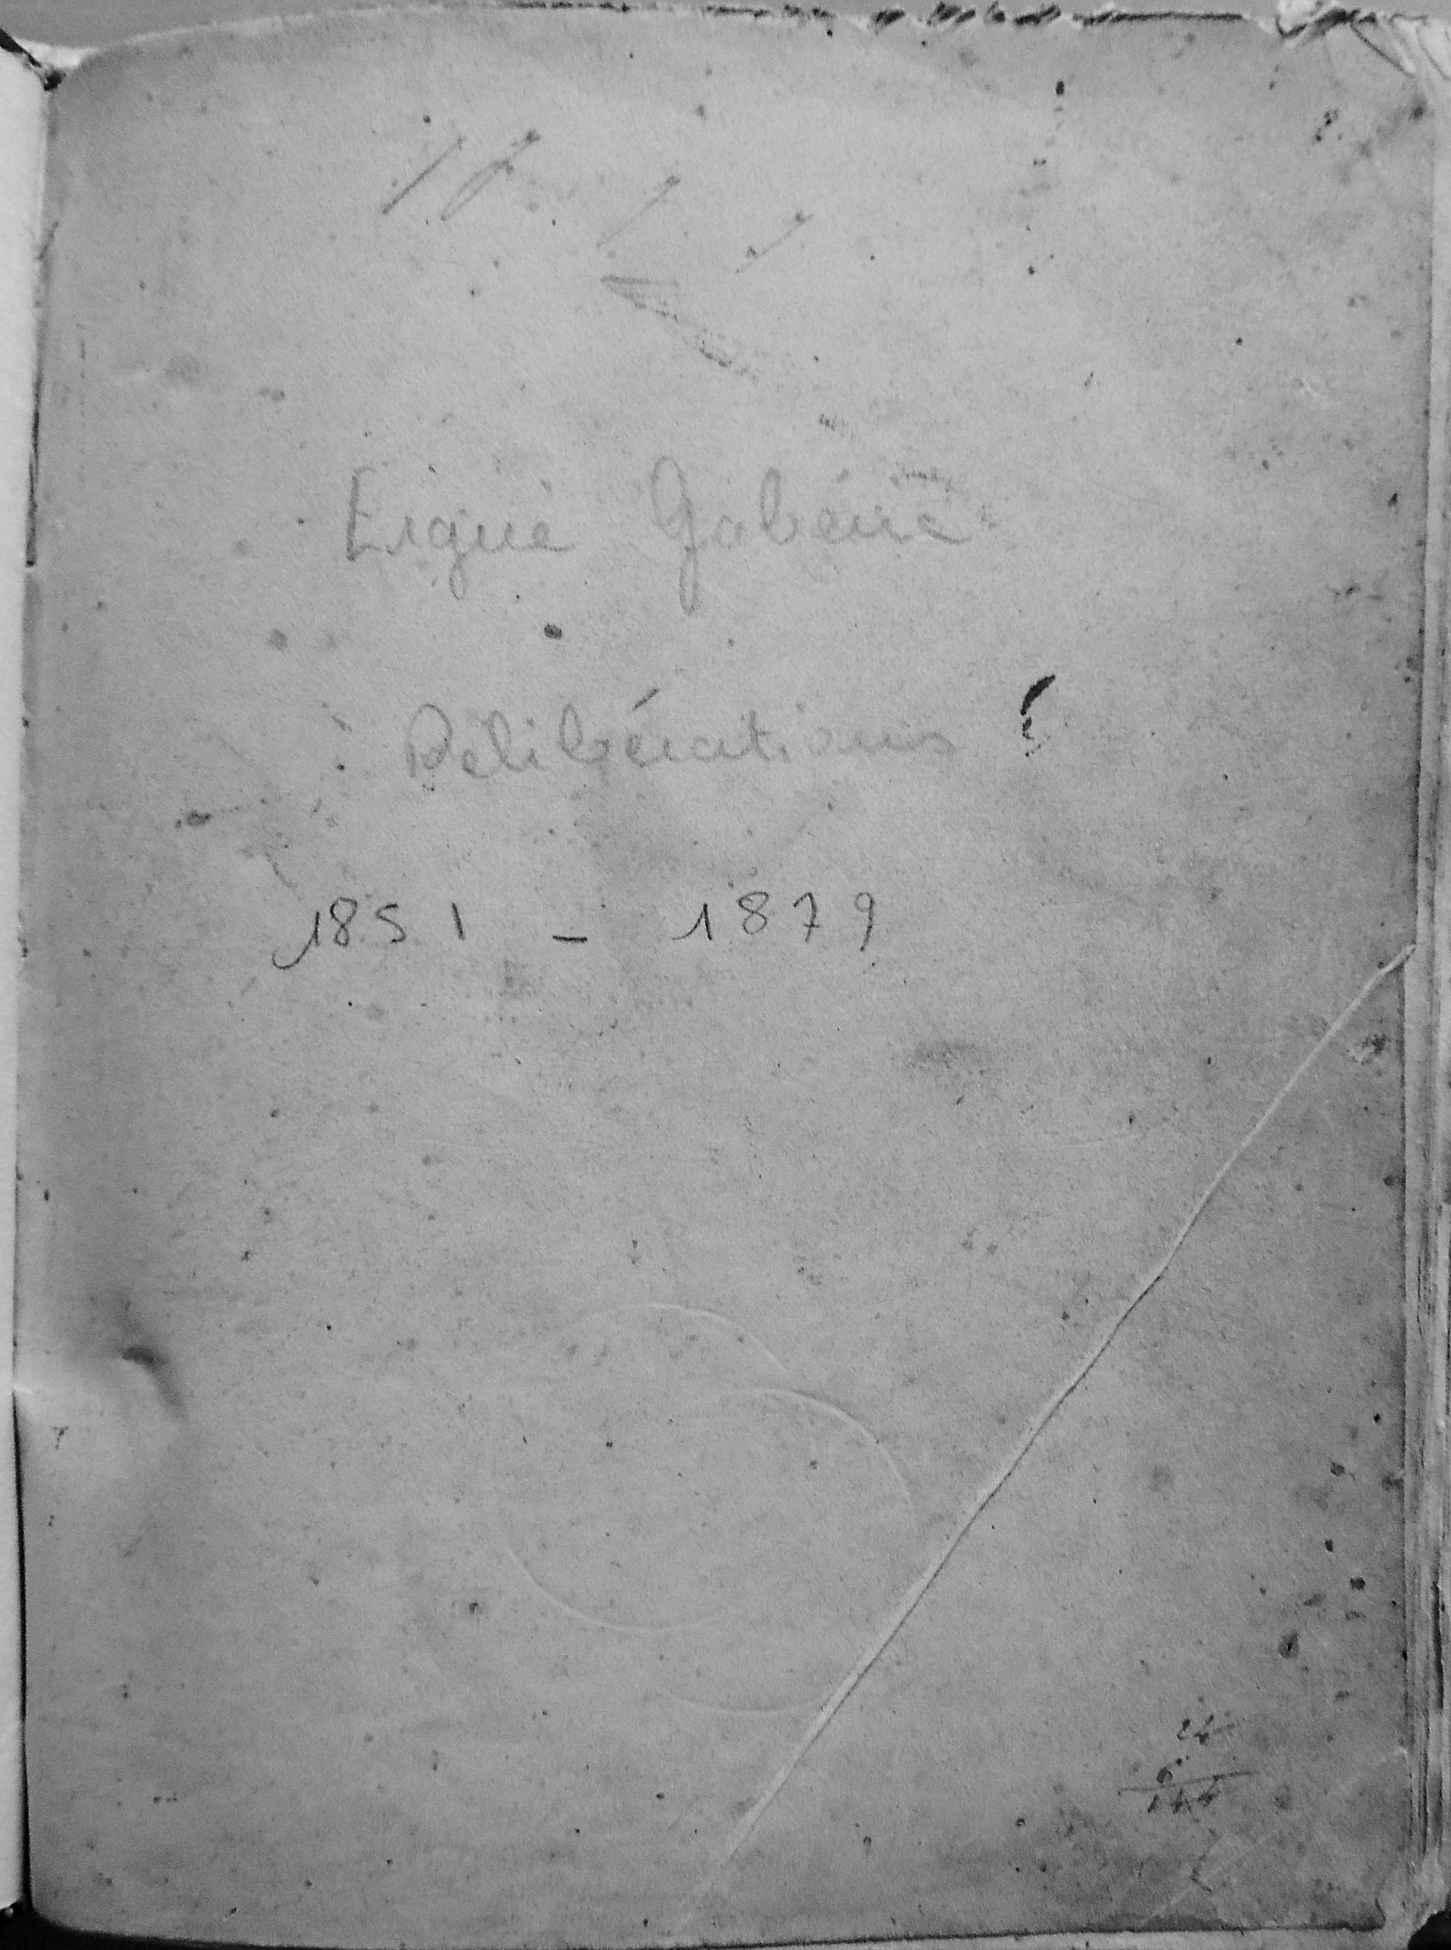 Ergué Gabéric
Délibérations
1851 - 1879
24
6
144